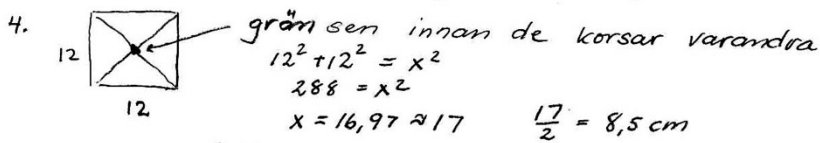 4.
12
12
gränsen innan de korsar varandra
12² + 12² = x²
288 = x²
x = 16,97 ≈ 17
17/2 = 8,5 cm